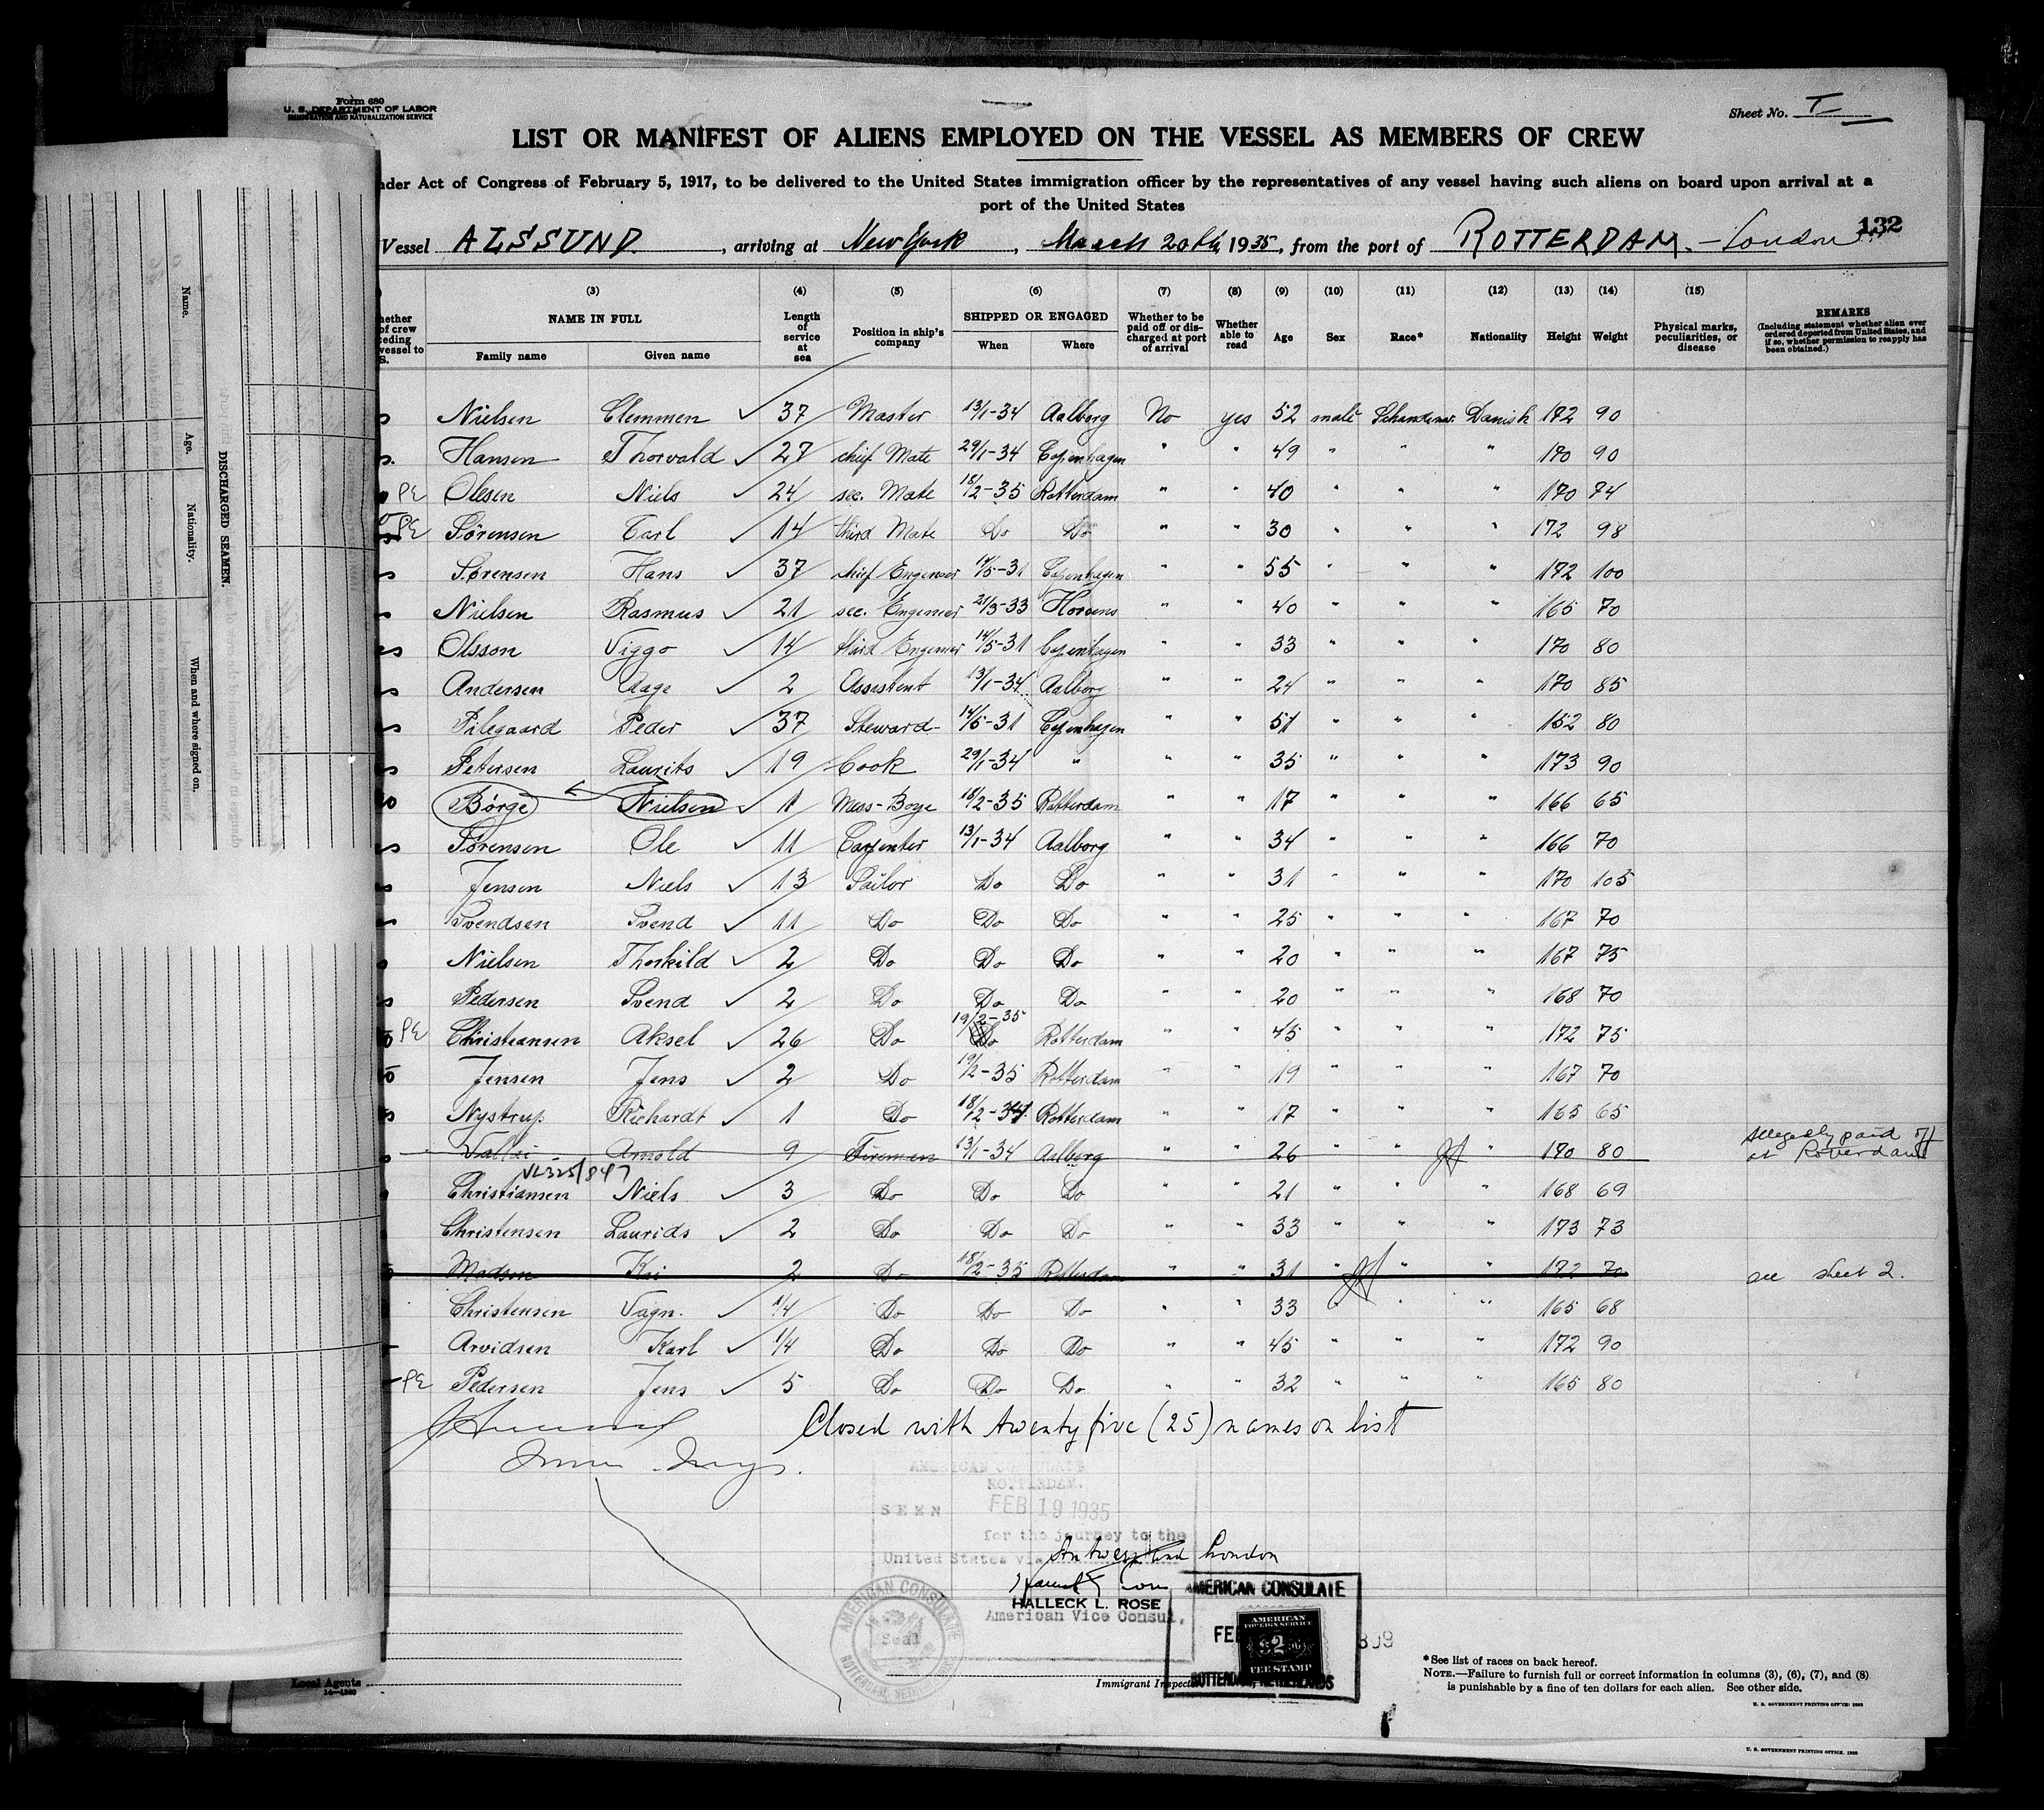 Form 680
U. S. DEPARTMENT OF LABOR
IMMIGRATION AND NATURALIZATION SERVICE
Sheet No. I
LIST OR MANIFEST OF ALIENS EMPLOYED ON THE VESSEL AS MEMBERS OF CREW
nder Act of Congress of February 5, 1917, to be delivered to the United States immigration officer by the representatives of any vessel having such aliens on board upon arrival at a
port of the United States
132
Vessel ALSSUND, arriving at New York, March 20th, 1935, from the port of ROTTERDAM. - London
(3) (4) (5) (6) (7) (8) (9) (10) (11) (12) (13) (14) (15)
NAME IN FULL Family name Given name Length of service at sea Position in ship's company SHIPPED OR ENGAGED When Where Whether to be paid off or discharged at port of arrival Whether able to read Age Sex Race* Nationality Height Weight Physical marks, peculiarities, or disease REMARKS (Including statement whether alien ever ordered deported from United States, and if so, whether permission to reapply has been obtained.)
Nielsen Clemmen 37 Master 13/1-34 Aalborg No yes 52 male Schandinav Danish 172 90
Hansen Thorvald 27 chief Mate 29/1-34 Copenhagen " " 49 " " " 170 90
PE Olesen Niels 24 sec. Mate 18/2-35 Rotterdam " " 40 " " " 170 74
PE Sørensen Carl 14 third Mate Do Do " " 30 " " " 172 98
Sørensen Hans 37 chief Engenier 14/5-31 Copenhagen " " 55 " " " 172 100
Nielsen Rasmus 21 sec. Engenier 21/3-33 Horsens " " 40 " " " 165 70
Olsson Viggo 14 third Engenier 14/5-31 Copenhagen " " 33 " " " 170 80
Andersen Aage 2 Assistent 13/1-34 Aalborg " " 24 " " " 170 85
Pilegaard Peder 37 Steward 14/5-31 Copenhagen " " 51 " " " 152 80
Petersen Laurits 19 Cook 29/1-34 " " " 35 " " " 173 90
Børge Nielsen 1 Mess-Boye 18/2-35 Rotterdam " " 17 " " " 166 65
Sørensen Ole 11 Carpenter 13/1-34 Aalborg " " 34 " " " 166 70
Jensen Niels 13 Sailor Do Do " " 31 " " " 170 105
Svendsen Svend 11 Do Do Do " " 25 " " " 167 70
Nielsen Thorkild 2 Do Do Do " " 20 " " " 167 75
Pedersen Svend 2 Do Do Do " " 20 " " " 168 70
PE Christiansen Aksel 26 Do 19/2-35 Rotterdam " " 45 " " " 172 75
Jensen Jens 2 Do 19/2-35 Rotterdam " " 19 " " " 167 70
Nystrup Richardt 1 Do 18/2-34 Rotterdam " " 17 " " " 165 65
Arnold 9 Fireman 13/1-34 Aalborg " " 26 " " " 170 80 Allegedly paid off at Rotterdam
VL325/847
Christiansen Niels 3 Do Do Do " " 21 " " " 168 69
Christensen Laurids 2 Do Do Do " " 33 " " " 173 73
Madsen Kai 2 Do 18/2-35 Rotterdam " " 31 " " " 172 70 see sheet 2.
Christensen Vagn. 1/4 Do Do Do " " 33 " " " 165 68
Arvidsen Karl 1/4 Do Do Do " " 45 " " " 172 90
PE Pedersen Jens 5 Do Do Do " " 32 " " " 165 80
Closed with twenty five (25) names on list
AMERICAN CONSULATE
ROTTERDAM.
SEEN FEB 19 1935
for the journey to the
United States via Antwerp and London
HALLECK L. ROSE
American Vice Consul.
AMERICAN CONSULATE
ROTTERDAM, NETHERLANDS
Seal
AMERICAN CONSULATE
AMERICAN
FOREIGN SERVICE
$2
FEE STAMP
ROTTERDAM, NETHERLANDS
Local Agents
Immigrant Inspector
*See list of races on back hereof.
NOTE.—Failure to furnish full or correct information in columns (3), (6), (7), and (8)
is punishable by a fine of ten dollars for each alien. See other side.
U. S. GOVERNMENT PRINTING OFFICE
U. S. GOVERNMENT PRINTING OFFICE
DISCHARGED SEAMEN.
Name.
Age.
Nationality.
When and where signed on.